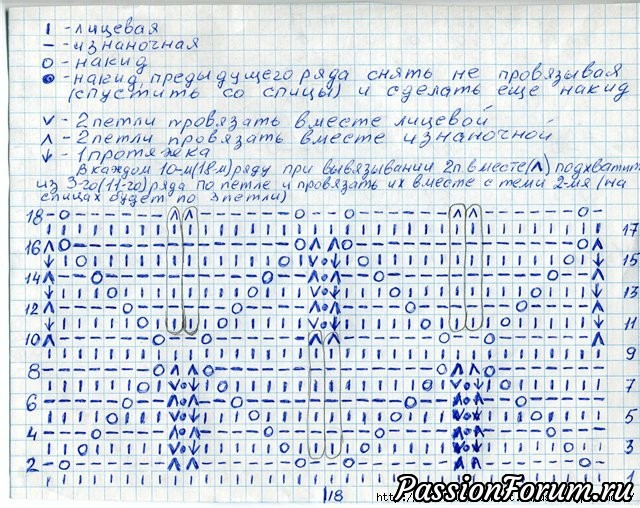 ı - лицевая
– - изнаночная
o - накид
• - накид предыдущего ряда снять не провязывая
(спустить со спицы) и сделать еще накид
v - 2 петли провязать вместе лицевой
ʌ - 2 петли провязать вместе изнаночной
↓ - 1 протяжка
В каждом 10-м (18 м) ряду при вывязывании 2п вместе (ʌ) подхватить
из 3-го (11-го) ряда по петле и провязать их вместе с теми 2-мя (на
спицах будет по 3 петли)
18
17
16
15
14
13
12
11
10
9
8
7
6
5
4
3
2
1
18
PassionForum.ru